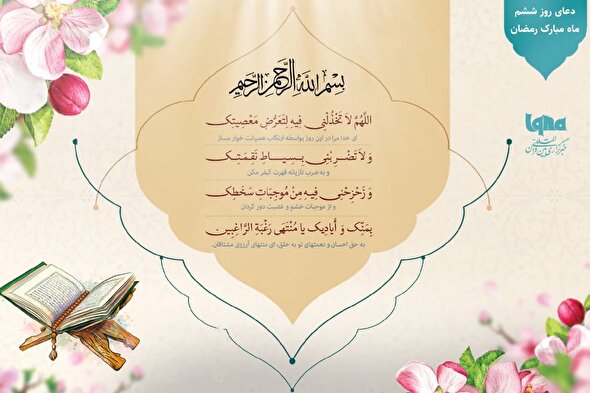 دعای روز ششم
ماه مبارک رمضان
بسم الله الرحمن الرحیم
اللَّهُمَّ لاَ تَخْذُلْنِي فِيهِ لِتَعَرُّضِ مَعْصِيَتِكَ
ای خدا مرا در این روز بواسطه ارتکاب عصیانت خوار مساز
وَ لاَ تَضْرِبْنِي بِسِيَاطِ نَقِمَتِكَ
و به ضرب تازیانه قهرت کیفر مکن
وَ زَحْزِحْنِي فِيهِ مِنْ مُوجِبَاتِ سَخَطِكَ
و از موجبات خشم و غضبت دور گردان
بِمَنِّكَ وَ أَيَادِيكَ يَا مُنْتَهَى رَغْبَةِ الرَّاغِبِينَ
به حق احسان و نعمتهای تو به خلق، ای منتهای آرزوی مشتاقان.
iqna
خبرگزاری بین المللی قرآن